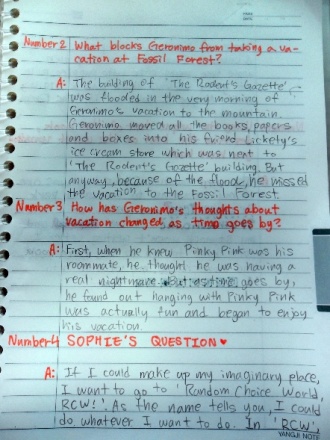 Number2 What blocks Geronimo from taking a va-
cation at Fossil Forest?
A: The building of 'The Rodent's Gazette'
was flooded in the very morning of
Geronimo's vacation to the mountain.
Geronimo moved all the books, papers
and boxes into his friend Lickely's
ice cream store which was next to
'The Rodent's Gazette' building. But
anyway, because of the flood, he missed
the vacation to the Fossil Forest.
Number3 How has Geronimo's thoughts about
vacation changed as time goes by?
A: First, when he knew Pinky Pink was his
roommate, he thought he was having a
real nightmare. But as time goes by,
he found out hanging with Pinky Pink
was actually fun and began to enjoy
his vacation.
Number4 SOPHIE'S QUESTION ♥
A: If I could make up my imaginary place,
I want to go to 'Random Choice World,
RCW!'. As the name tells you, I could
do whatever I want to do. In 'RCW',
YANGJI NOTE